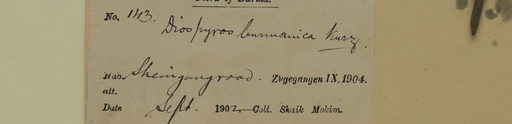 Flora of Burma.
No. 143.
Diospyros burmanica Kurz.
Hab. Sheingangroad. Zugegangen IX. 1904.
alt.
Date Sept. 1902. Coll. Shaik Mokim.